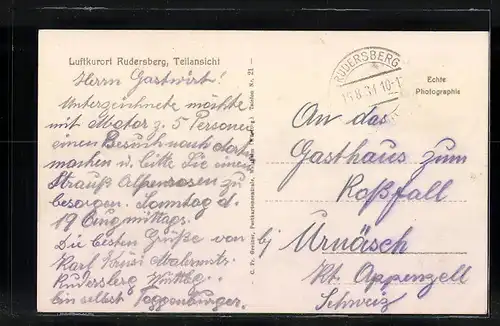 Luftkurort Rudersberg, Teilansicht
Herrn Gastwirt!
Unterzeichnete möchte
mit Motor z. 5 Personen
einen Besuch nach dort
machen u. bitte Sie einen
Strauß Alpenrosen zu
besorgen. Sonntag d.
19 Aug mittags.
Die besten Grüße von
Karl Malermstr.
Rudersberg Württbg.
bin selbst Toggenburger.
RUDERSBERG
15.8.34.10-1
Echte
Photographie
An das
Gasthaus zum
Roßfall
bj Urnäsch
Kt. Appenzell
Schweiz